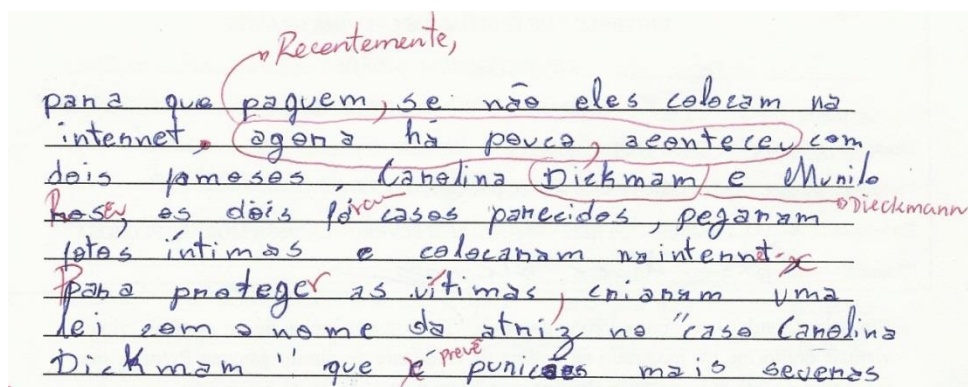 Recentemente,
para que paguem, se não eles colocam na
internet. agora há pouco, aconteceu com
dois famosos, Carolina Dickmam e Munilo
Dieckmann
Rosa, os dois casos parecidos, pegaram
fotos íntimas e colocaram na internet.
Para proteger as vítimas, criaram uma
lei com o nome da atriz no "caso Carolina
prevê
Dickmam" que é punições mais severas